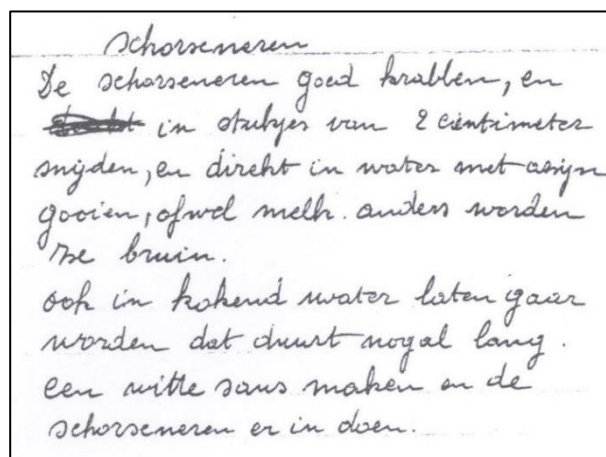 schorseneren
De schorseneren goed krabben, en
in stukjes van 2 centimeter
snijden, en direkt in water met azijn
gooien, ofwel melk. anders worden
ze bruin.
ook in kokend water laten gaar
worden dat duurt nogal lang.
een witte saus maken en de
schorseneren er in doen.